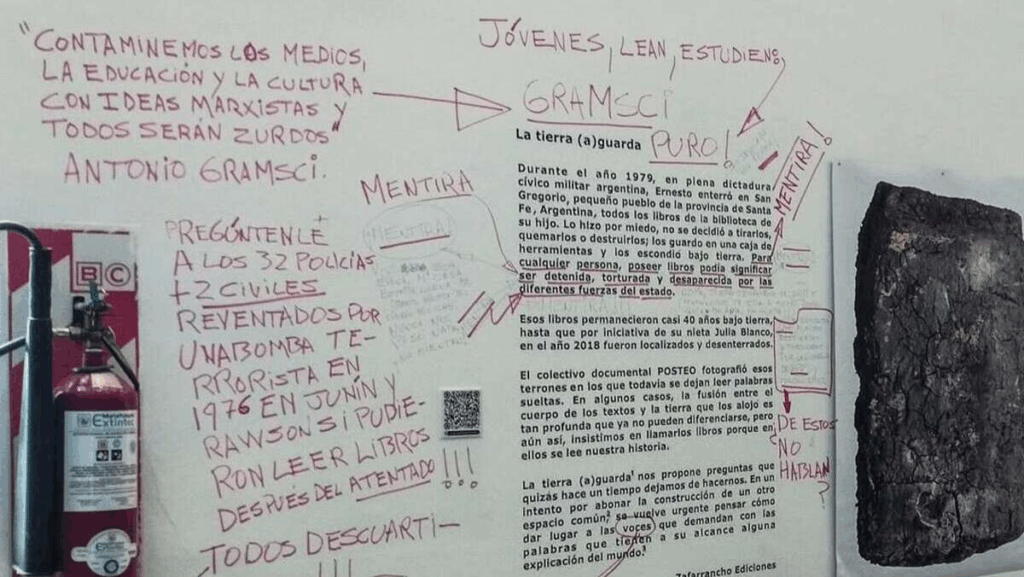 "CONTAMINEMOS LOS MEDIOS,
LA EDUCACIÓN Y LA CULTURA
CON IDEAS MARXISTAS Y
TODOS SERÁN ZURDOS"
ANTONIO GRAMSCI.
JÓVENES, LEAN, ESTUDIEN,
GRAMSCI
PURO!
La tierra (a)guarda
Durante el año 1979, en plena dictadura
cívico militar argentina, Ernesto enterró en San
Gregorio, pequeño pueblo de la provincia de Santa
Fe, Argentina, todos los libros de la biblioteca de
su hijo. Lo hizo por miedo, no se decidió a tirarlos,
quemarlos o destruirlos; los guardo en una caja de
herramientas y los escondió bajo tierra. Para
cualquier persona, poseer libros podía significar
ser detenida, torturada y desaparecida por las
diferentes fuerzas del estado.
Esos libros permanecieron casi 40 años bajo tierra,
hasta que por iniciativa de su nieta Julia Blanco,
en el año 2018 fueron localizados y desenterrados.
El colectivo documental POSTEO fotografió esos
terrones en los que todavia se dejan leer palabras
sueltas. En algunos casos, la fusión entre el
cuerpo de los textos y la tierra que los alojo es
tan profunda que ya no pueden diferenciarse, pero
aún así, insistimos en llamarlos libros porque en
ellos se lee nuestra historia.
La tierra (a)guarda¹ nos propone preguntas que
quizás hace un tiempo dejamos de hacernos. En un
intento por abonar la construcción de un otro
espacio común,² se vuelve urgente pensar cómo
dar lugar a las voces que demandan con las
palabras que tienen a su alcance alguna
explicación del mundo.³
Zafarrancho Ediciones
MENTIRA
MENTIRA
MENTIRA!
PREGÚNTENLE
A LOS 32 POLICIAS
+2 CIVILES
REVENTADOS POR
UNA BOMBA TE-
RRORISTA EN
1976 EN JUNÍN Y
RAWSON SI PUDIE-
RON LEER LIBROS
DESPUÉS DEL ATENTADO!!!
TODOS DESCUARTI-
!!!
DE ESTOS
NO
HABLAN
?
B C
Extintec